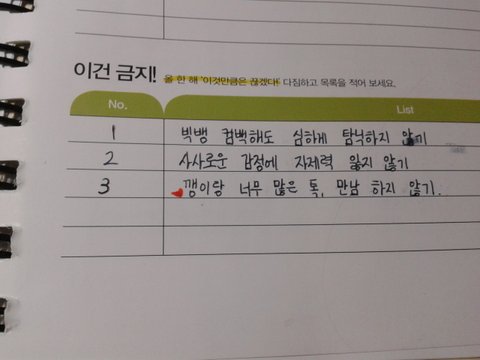 이건 금지! 올 한 해 '이것만큼은 끊겠다!' 다짐하고 목록을 적어 보세요.
No. List
1 빅뱅 컴백해도 심하게 탐닉하지 않기
2 사사로운 감정에 자제력 잃지 않기
3 깽이랑 너무 많은 톡, 만남 하지 않기.